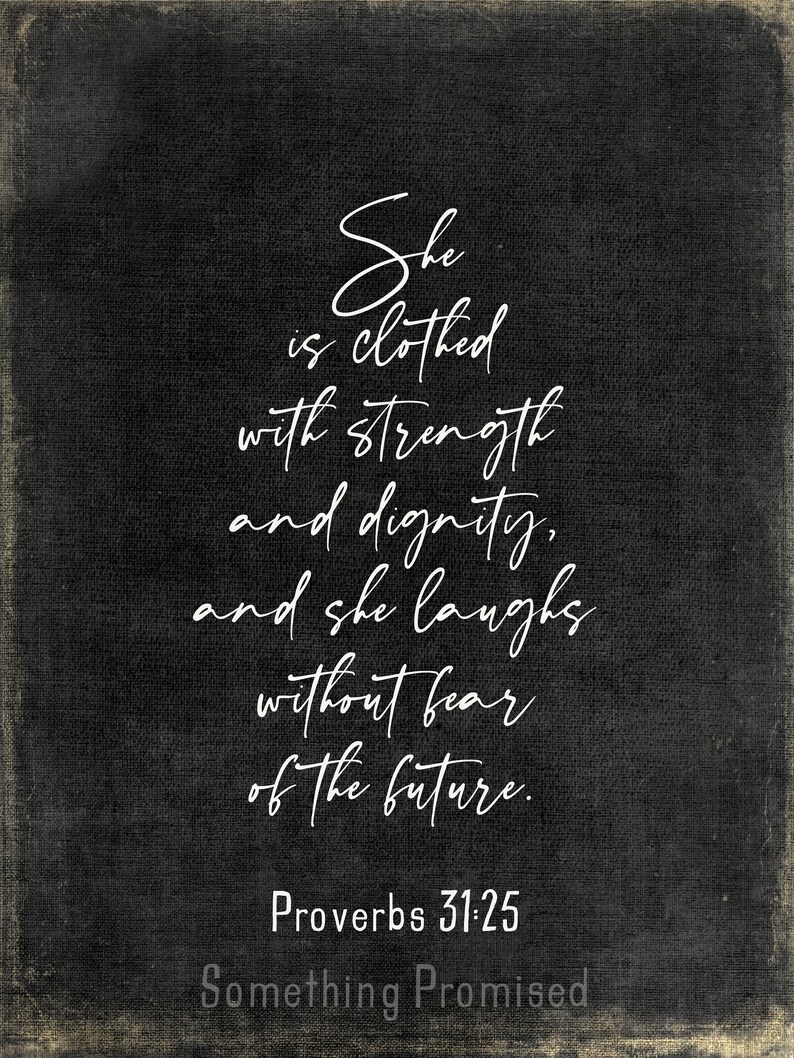 She
is clothed
with strength
and dignity,
and she laughs
without fear
of the future.
Proverbs 31:25
Something Promised